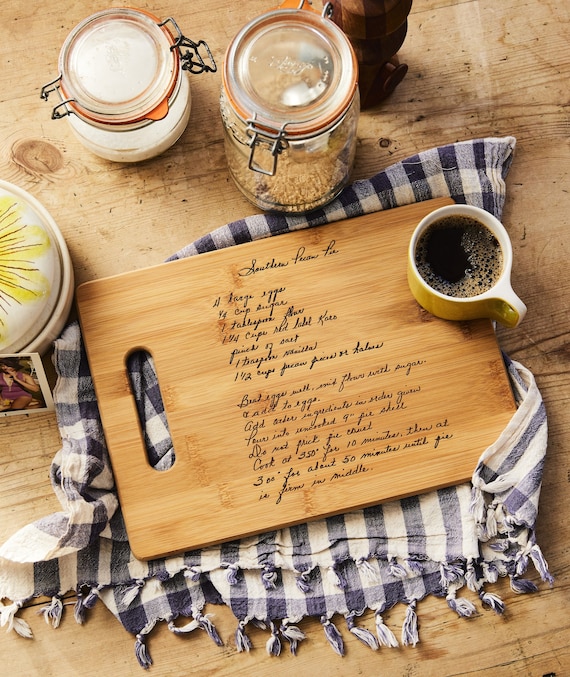 Southern Pecan Pie
4 large eggs
3/4 cup sugar
1 tablespoon flour
1 1/4 cups red label Karo
pinch of salt
1 teaspoon vanilla
1 1/2 cups pecan pieces or halves
Beat eggs well, mix flour with sugar.
& add to eggs.
Add order ingredients in order given
Pour into uncooked 9" pie shell
Do not prick pie crust
Cook at 350° for 10 minutes, then at
300° for about 50 minutes until pie
is firm in middle.